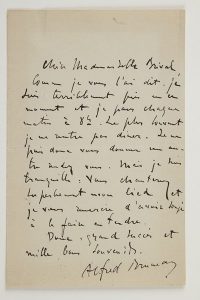 Chère Mademoiselle Bréval,
Comme je vous l'ai dit, je
suis terriblement pris en ce
moment et je pars chaque
matin à 8h. Le plus souvent
je ne rentre pas dîner. Je ne
puis donc vous donner un
rendez vous. Mais je suis
tranquille. Vous chanterez
superbement mon lied et
je vous remercie d'avoir songé
à le faire entendre.
Donc, grand succès et
mille bons souvenirs.
Alfred Bruneau